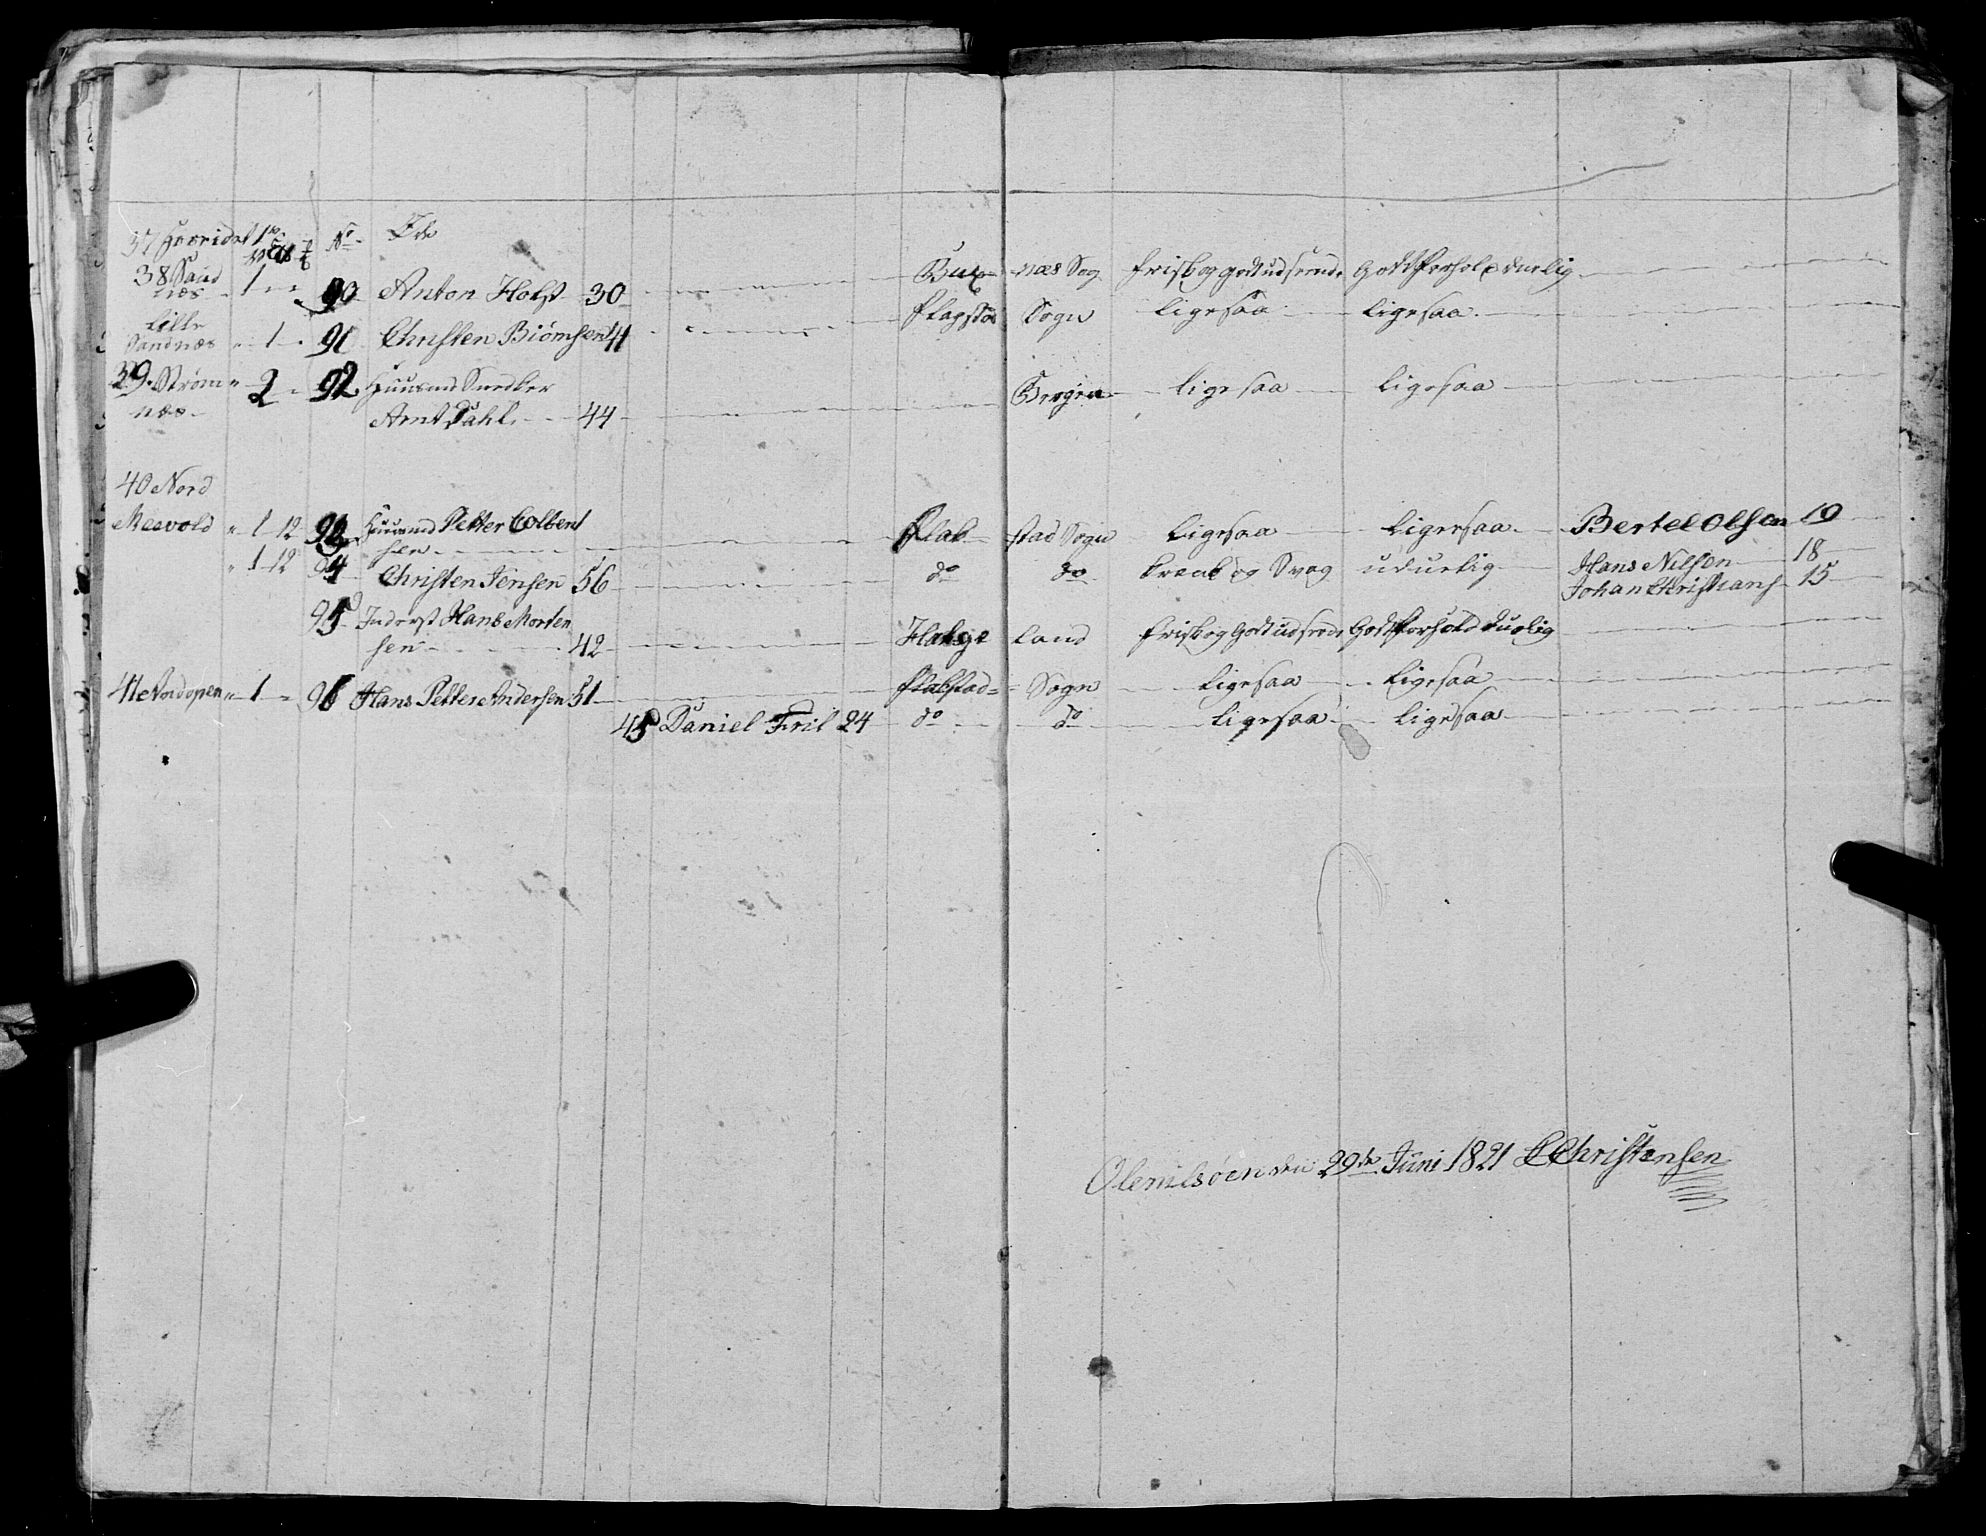 37 1 No Øde
38 Sand
næs 1 90 Anton Holst 30 Bux næs Sog frisk og godt udseende Godt forhold duelig
Lille
Sandnæs 1 91 Christen Biörnsen 41 flagstad Sogn Ligesaa Ligesaa
39 Strøm 2 92 Huusmd Snedker
næs Arnt Dahl 44 Bergen Ligesaa Ligesaa
40 Nord
1 12 93 Huusmd Petter Colbent
sen flak stad Sogn Ligesaa Ligesaa Bertel Olsen 19
1 12 94 Christen Jensen 56 do do Svag uduelig Hans Nilsen 18
Johan Christians 15
95 Inderst Hans Morten
sen 42 Helge land frisk og Godt udseende Godt forhold duelig
41 Nordopen 1 96 Hans Petter Andersen 51 flakstad Sogn Ligesaa Ligesaa
45 Daniel Fril 24 do do Ligesaa Ligesaa
Olenilsøen den 29de Juni 1821 C Christensen